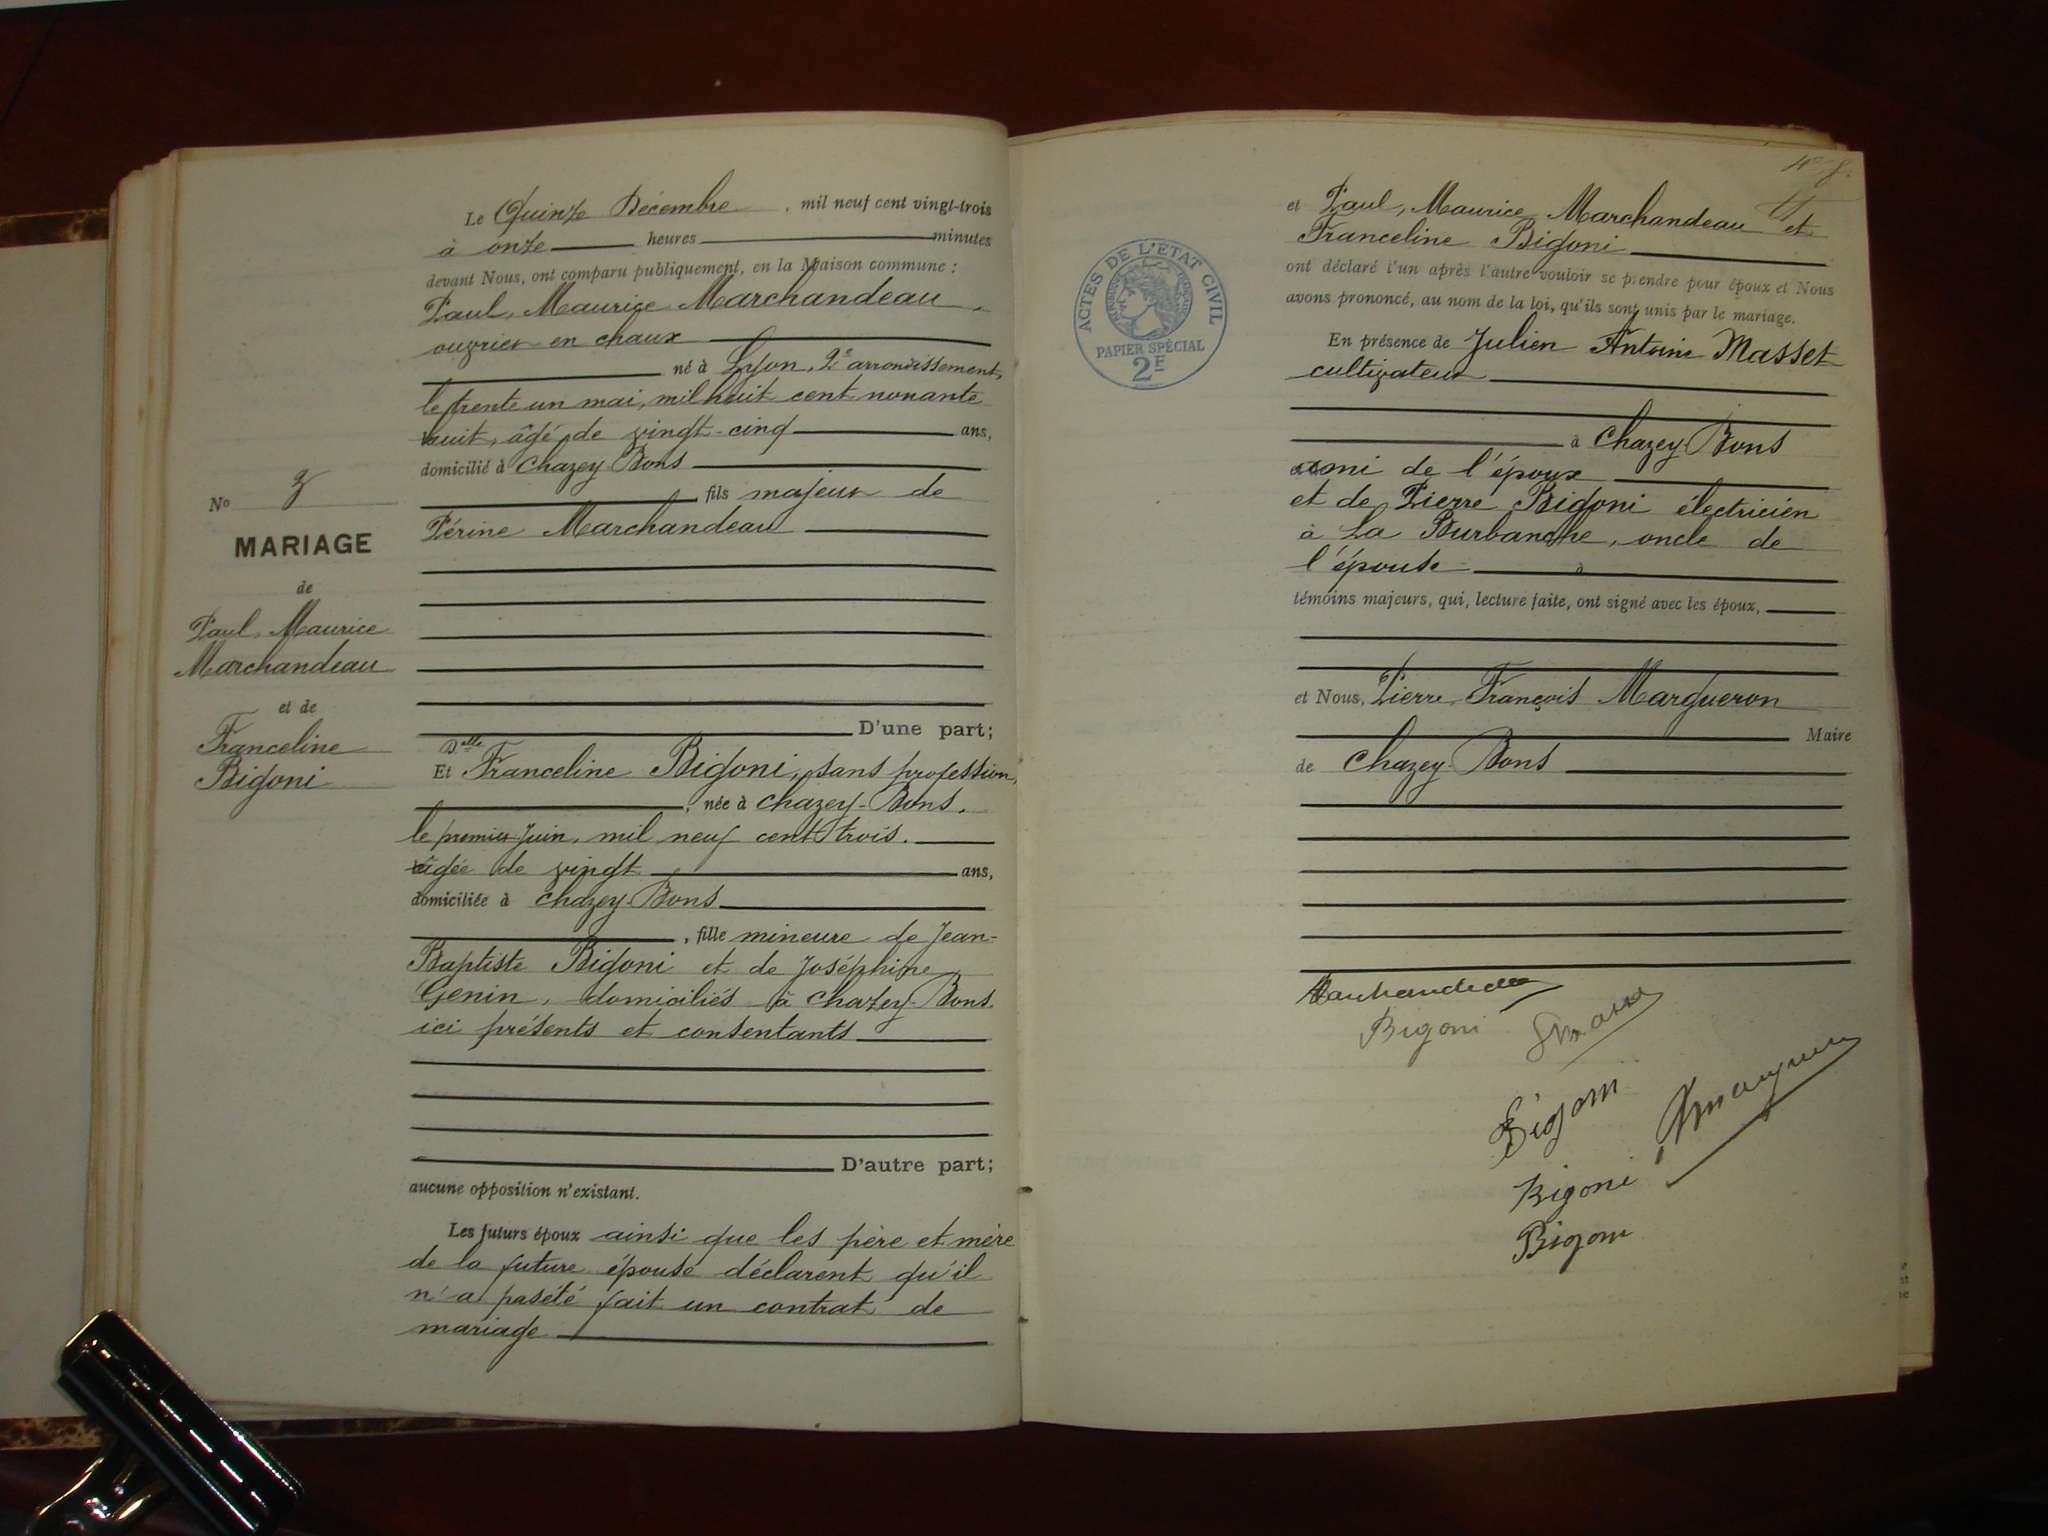 Le Quinze Décembre, mil neuf cent vingt-trois
à onze heures minutes
devant Nous, ont comparu publiquement, en la Maison commune :
Paul, Maurice Marchandeau,
ouvrier en chaux
né à Lyon, 2e arrondissement,
le trente un mai, mil huit cent nonante
huit, âgé de vingt-cinq ans,
domicilié à Chazey-Bons
fils majeur de
Périne Marchandeau
D'une part;
No
MARIAGE
de
Paul, Maurice
Marchandeau
et de
Franceline
Bigoni
Delle
Et Franceline Bigoni, sans profession,
, née à Chazey-Bons,
le premier Juin, mil neuf cent trois.
âgée de vingt ans,
domiciliée à Chazey-Bons
, fille mineure de Jean-
Baptiste Bigoni et de Joséphine
Genin, domiciliés à Chazey-Bons.
ici présents et consentants
D'autre part;
aucune opposition n'existant.
Les futurs époux ainsi que les père et mère
de la future épouse déclarent qu'il
n'a pas été fait un contrat de
mariage
ACTES DE L'ÉTAT CIVIL
PAPIER SPÉCIAL
2F
et Paul, Maurice Marchandeau et
Franceline Bigoni
ont déclaré l'un après l'autre vouloir se prendre pour époux et Nous
avons prononcé, au nom de la loi, qu'ils sont unis par le mariage.
En présence de Julien Antoine Masset
cultivateur
à Chazey-Bons
ami de l'époux
et de Pierre Bigoni électricien
à La Burbanche, oncle de
l'épouse à
témoins majeurs, qui, lecture faite, ont signé avec les époux,
et Nous, Pierre François Margueron
Maire
de Chazey-Bons
Bigoni
Bigoni
Bigoni
Bigoni